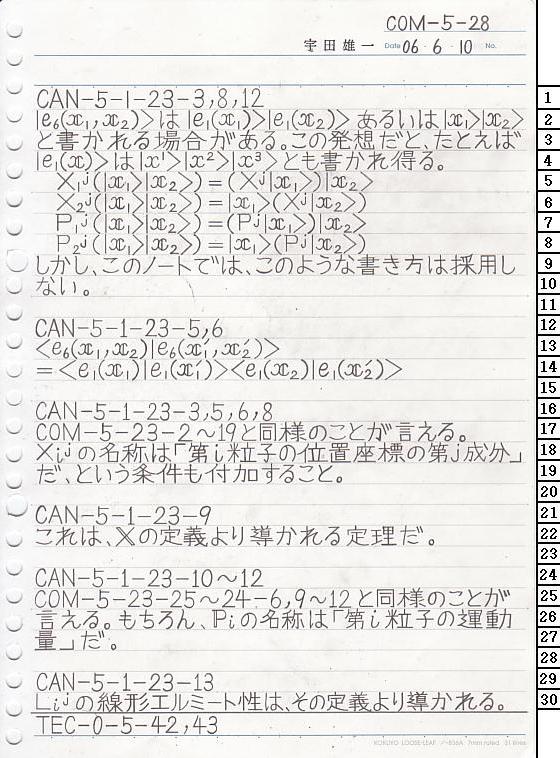 COM-5-28
宇田雄一 Date 06・6・10 No.
CAN-5-1-23-3,8,12
|e₆(x₁,x₂)>は|e₁(x₁)>|e₁(x₂)> あるいは|x₁>|x₂>
と書かれる場合がある。この発想だと、たとえば
|e₁(x)>は|x¹>|x²>|x³>とも書かれ得る。
X₁ʲ(|x₁>|x₂>)=(Xʲ|x₁>)|x₂>
X₂ʲ(|x₁>|x₂>)=|x₁>(Xʲ|x₂>)
P₁ʲ(|x₁>|x₂>)=(Pʲ|x₁>)|x₂>
P₂ʲ(|x₁>|x₂>)=|x₁>(Pʲ|x₂>)
しかし、このノートでは、このような書き方は採用し
ない。
CAN-5-1-23-5,6
<e₆(x₁,x₂)|e₆(x₁′,x₂′)>
=<e₁(x₁)|e₁(x₁′)><e₁(x₂)|e₁(x₂′)>
CAN-5-1-23-3,5,6,8
COM-5-23-2〜19と同様のことが言える。
Xᵢʲの名称は「第i粒子の位置座標の第j成分」
だ、という条件も付加すること。
CAN-5-1-23-9
これは、𝕏の定義より導かれる定理だ。
CAN-5-1-23-10〜12
COM-5-23-25〜24-6,9〜12と同様のことが
言える。もちろん、Pᵢの名称は「第i粒子の運動
量」だ。
CAN-5-1-23-13
Lᵢʲの線形エルミート性は、その定義より導かれる。
TEC-0-5-42,43
KOKUYO LOOSE-LEAF ノ-836A 7mm ruled 31 lines
1
2
3
4
5
6
7
8
9
10
11
12
13
14
15
16
17
18
19
20
21
22
23
24
25
26
27
28
29
30